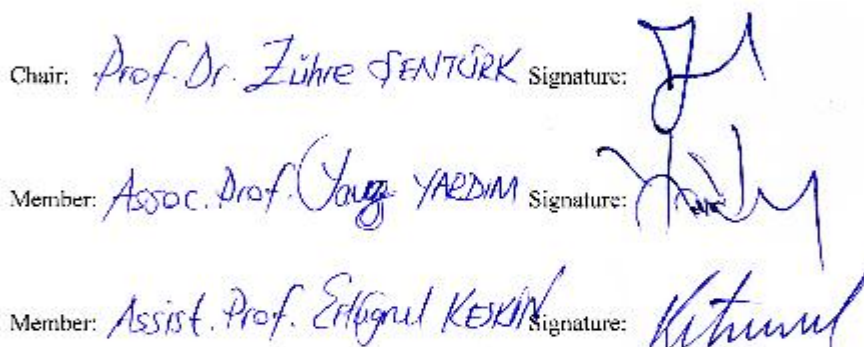 Chair: Prof. Dr. Zühre ŞENTÜRK Signature:
Member: Assoc. Prof. Yavuz YARDIM Signature:
Member: Assist. Prof. Ertuğrul KESKİN Signature: